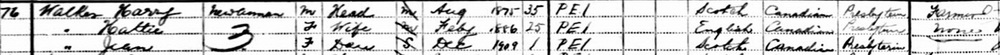 76 Walker Harry Newannan M Head M Aug 1875 35 PEI Scotch Canadian Presbyterian Farmer
" Hattie F Wife M Feby 1886 25 PEI English Canadian Presbyterian None
" Jean F Dau S Dec 1909 1 PEI Scotch Canadian Presbyterian